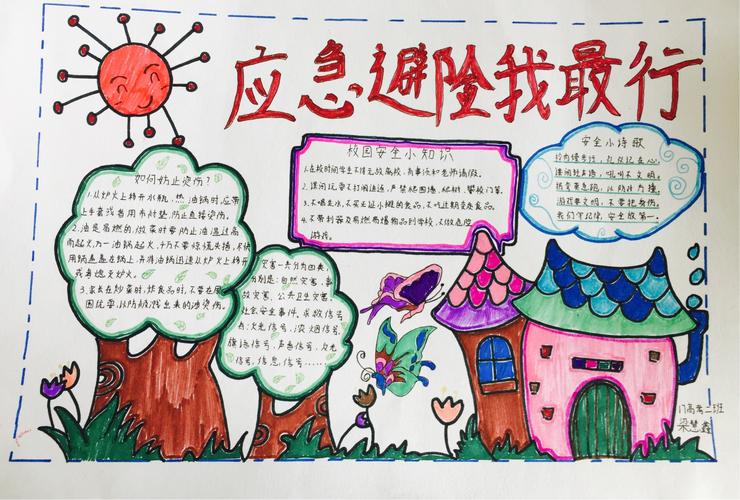 应急避险我最行
校园安全小知识
1.在校时间学生不得无故离校,有事须和老师请假。
2.课间玩耍不打闹追逐,严禁爬围墙、爬树、攀校门等。
3.不喝生水,不买无证小摊的食品,不吃过期变质食品。
4.不带利器及易燃易爆物品到学校,不做危险
游戏。
安全小诗歌
校内慢步行,礼仪记在心
课间轻声语,吼叫不文明。
拐弯莫急跑,以防体力撞
游戏要文明,不要把身伤。
我们牢记住,安全放第一。
如何防止烫伤?
1.从炉火上移开水瓶、热油锅时,应带
上手套或者用布衬垫,防止直接烫伤。
2.油是易燃的,做菜时要防止油温过高
而起火,万一油锅起火,千万不要惊慌失措,
锅盖盖住锅上,并将油锅迅速从炉火上移开
或者熄灭炉火。
3.家长在炒菜时,炸食品时,不要在周
围玩耍,以防被溅出来的油烫伤。
灾害一共分为四类,
分别是:自然灾害、事
故灾害、公共卫生灾害、
社会安全事件。求救信号
有:火光信号、浓烟信号、
旗语信号、声音信号、反光
信号、信息信号……
17高考二班
梁慧鑫